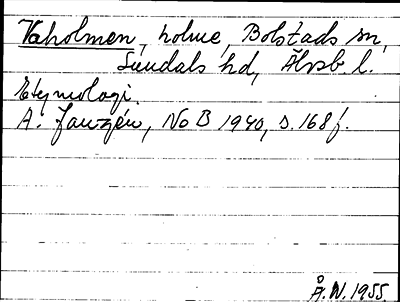 Vaholmen, holme, Bolstads sn,
Sundals hd, Älvsb. l.
Etymologi.
A. Janzén, NoB 1940, s. 168 f.
Å. W. 1955.